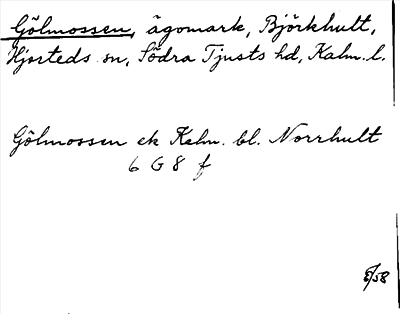 Gölmossen, ägomark, Björkhult,
Hjorteds sn, Södra Tjusts hd, Kalm. l.
Gölmossen ek Kalm. bl. Norrhult
6 G 8 f